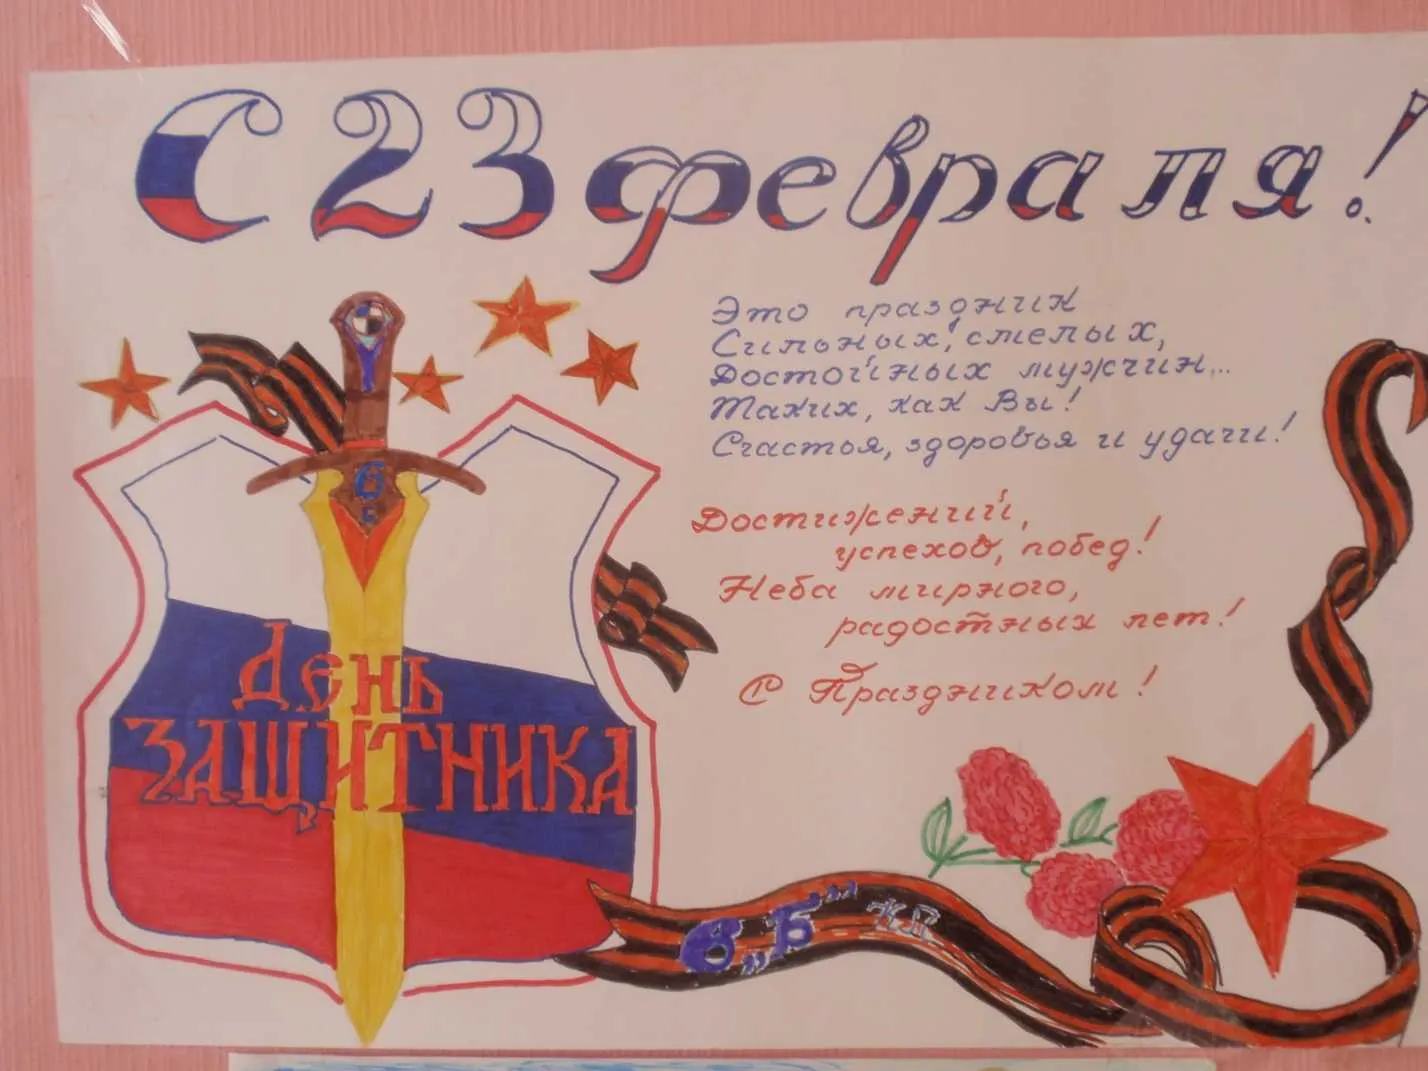 С 23 февраля!
Это праздник
Сильных, смелых,
Достойных мужчин...
Таких, как Вы!
Счастья, здоровья и удачи!
Достижений,
успехов, побед!
Неба мирного,
радостных лет!
С Праздником!
6
Б
День
защитника
6 „Б" кл